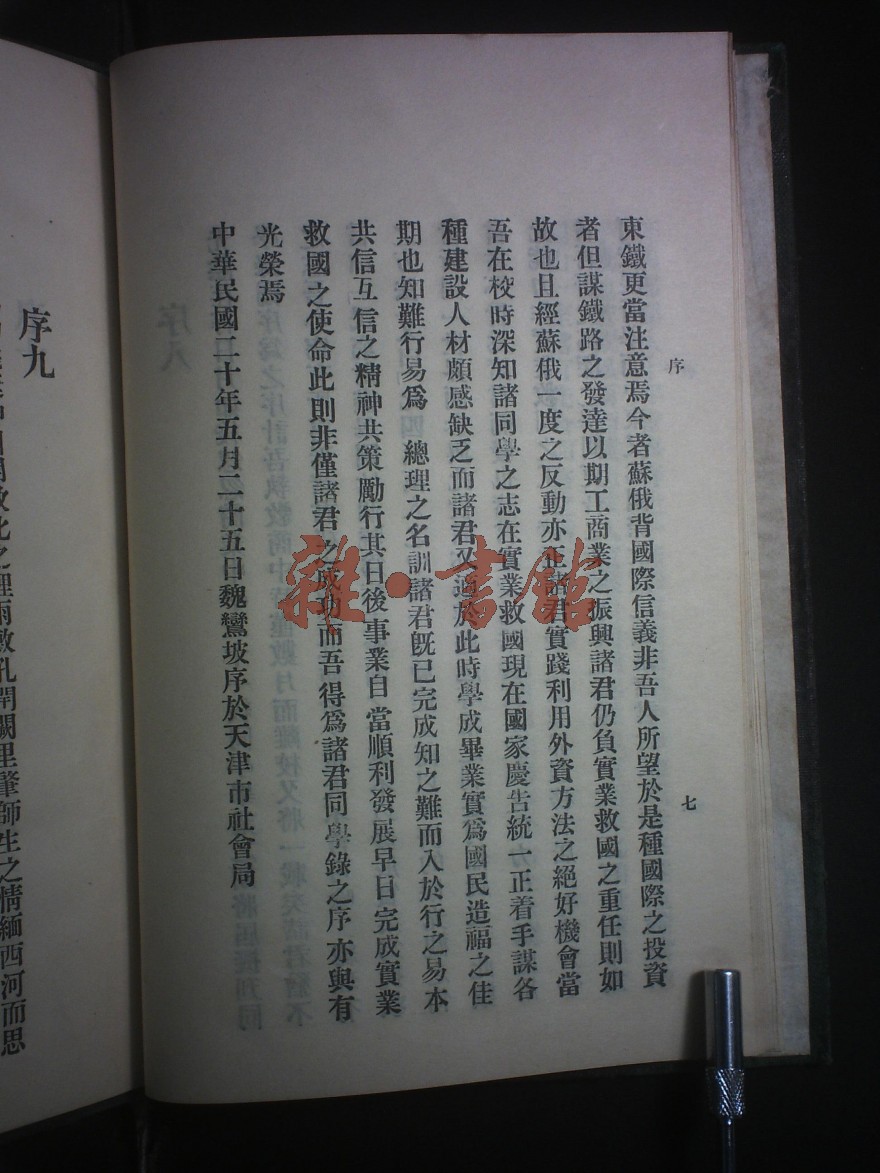 序
七
東鐵更當注意焉今者蘇俄背國際信義非吾人所望於是種國際之投資
者但謀鐵路之發達以期工商業之振興諸君仍負實業救國之重任則如
故也且經蘇俄一度之反動亦正諸君實踐利用外資方法之絕好機會當
吾在校時深知諸同學之志在實業救國現在國家慶告統一正着手謀各
種建設人材頗感缺乏而諸君又適於此時學成畢業實爲國民造福之佳
期也知難行易爲 總理之名訓諸君旣已完成知之難而入於行之易本
共信互信之精神共策勵行其日後事業自當順利發展早日完成實業
救國之使命此則非僅諸君之成功而吾得爲諸君同學錄之序亦與有
光榮焉
中華民國二十年五月二十五日魏鸞坡序於天津市社會局
雜·書館
序九
之理兩數孔門闕里肇師生之情緬西河而思